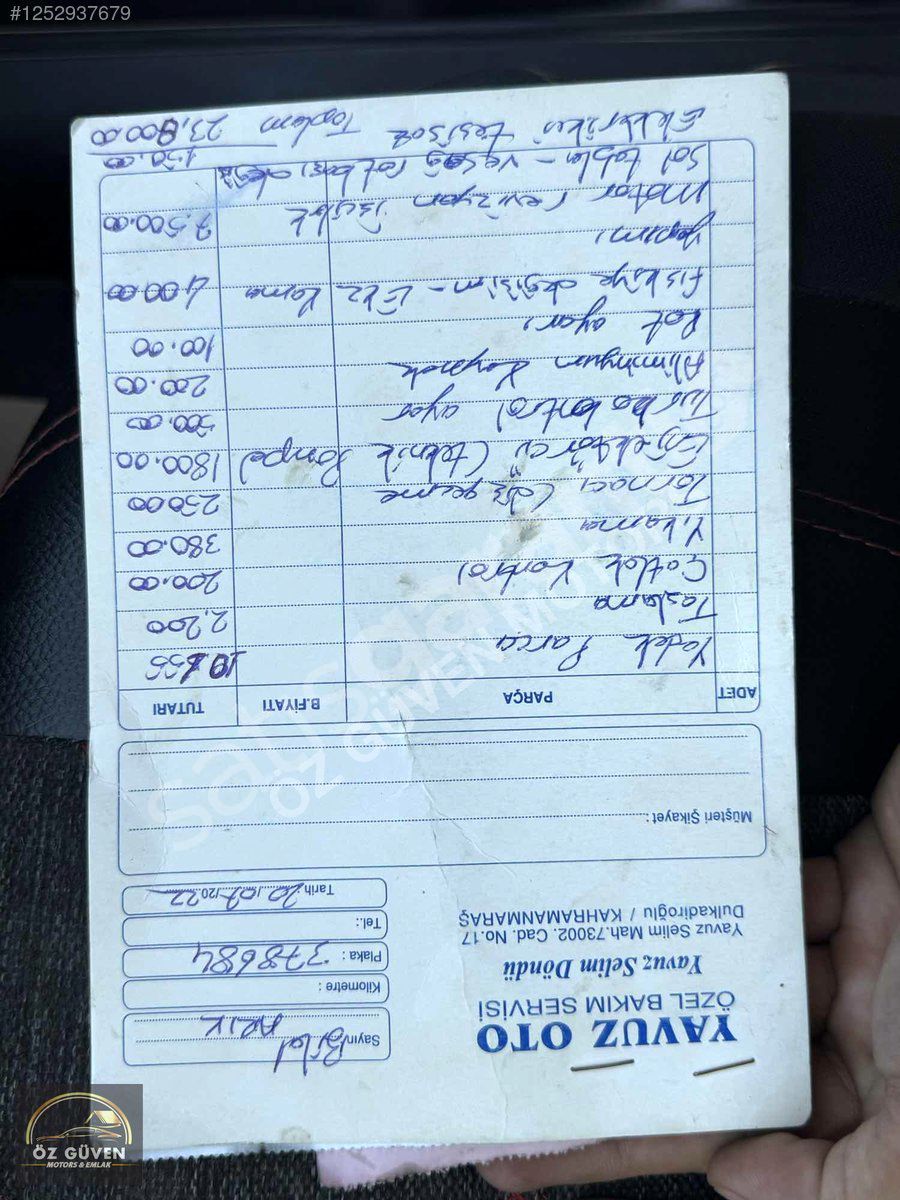 #1252937679
YAVUZ OTO
ÖZEL BAKIM SERVİSİ
Yavuz Selim Döndü
Yavuz Selim Mah.73002. Cad. No.17
Dulkadiroğlu / KAHRAMANMARAŞ
Sayın Bilal
ARIK
Kilometre :
Plaka : 378684
Tel.:
Tarih: 20/07/2022
Müşteri Şikayet :
ADET PARÇA B.FİYATI TUTARI
Yedek Parça
Taşlama 2,200
Çatlak Kontrol 200.00
Yıkama 380.00
Tornacı 250.00
Enjektörcü (teknik Pompa) 1800.00
Turbo kontrol ayar 500.00
Aliminyun Kaynak 200.00
Rot ayarı 100.00
Fiskiye değişim - 400.00
yapımı
Motor revizyon işçilik 7.500.00
Sol tabla - ve sağ rotbaşı 150.00
Elektrikci tesisat Toplam 23,800.00
sahibinden
ÖZ GÜVEN MOTORS
ÖZ GÜVEN
MOTORS & EMLAK